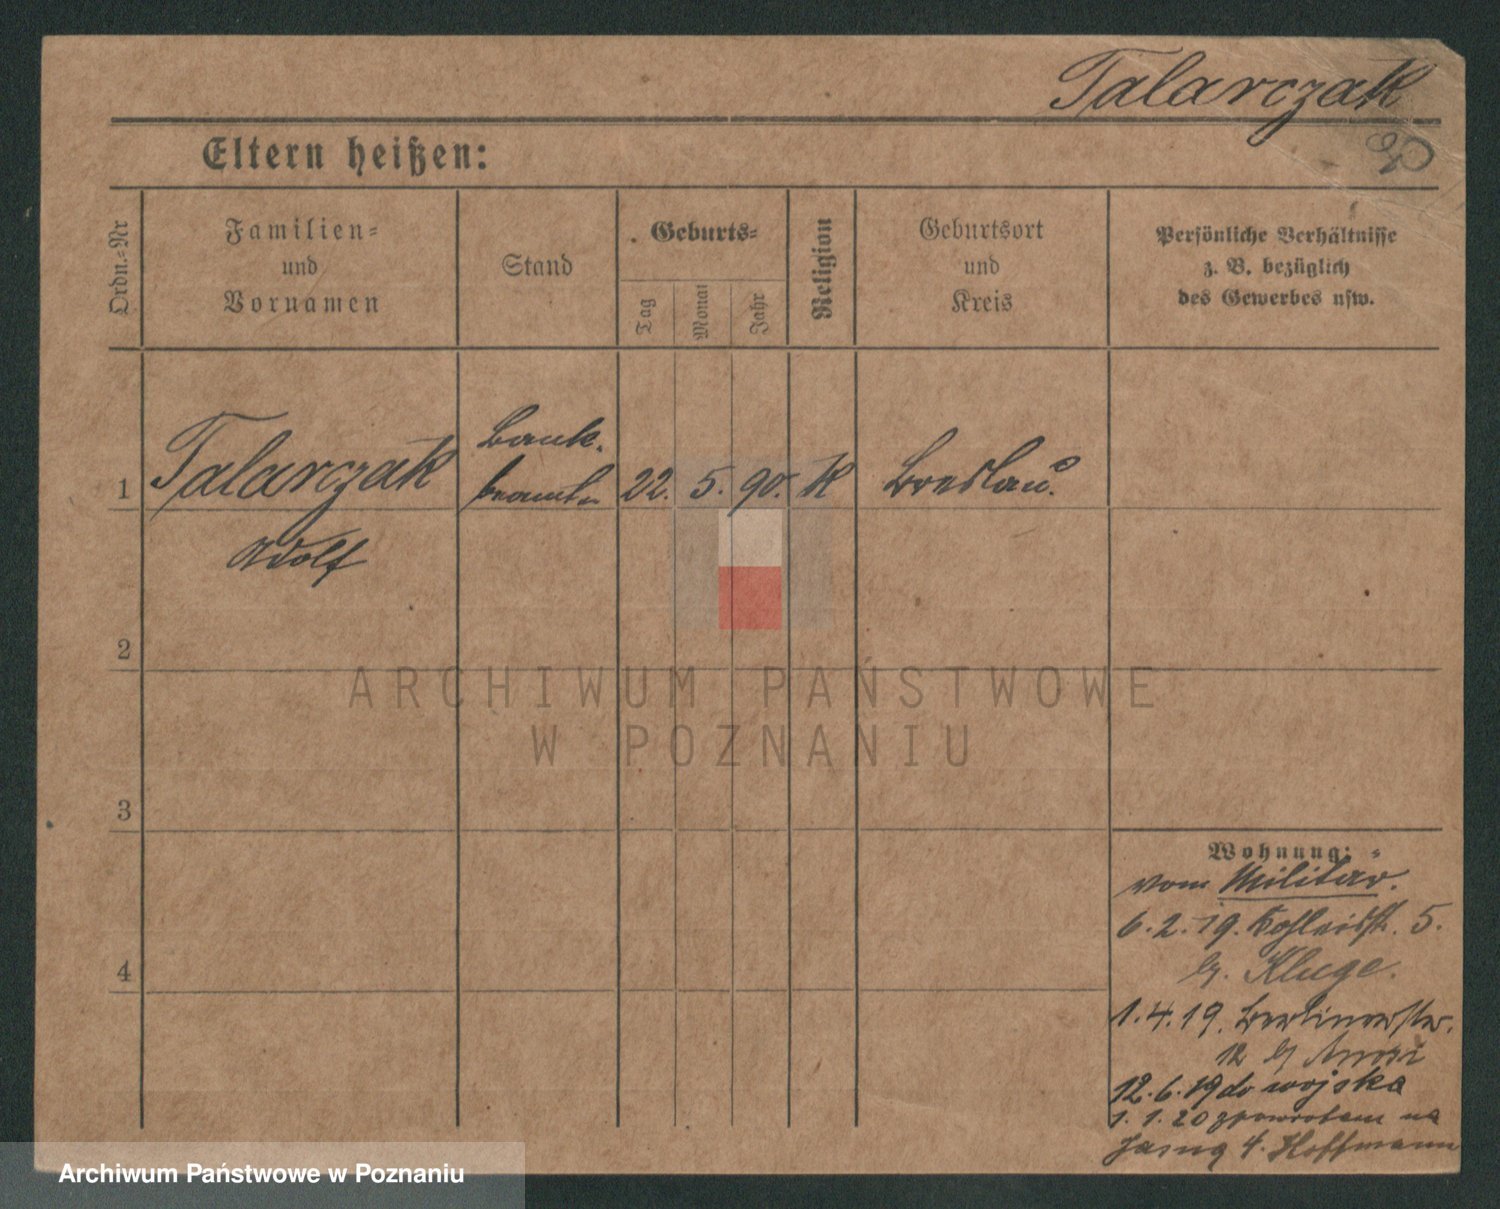 Talarczak
Eltern heißen:
Ordn.-Nr
Familien-
und
Vornamen
Stand
Geburts-
Tag
Monat
Jahr
Religion
Geburtsort
und
Kreis
Persönliche Verhältnisse
z. B. bezüglich
des Gewerbes usw.
1
Talarczak
Bank-
beamter
22. 5. 90. K
Breslau
Adolf
2
ARCHIWUM PAŃSTWOWE
W POZNANIU
3
4
Wohnung:
vom Militär.
6.2.19. 5.
Kluge.
1.4.19. Berlinerstr.
12
12.6.19 do wojska
1.1.20 zpowrotem na
Jasną 4. Hoffmann
Archiwum Państwowe w Poznaniu